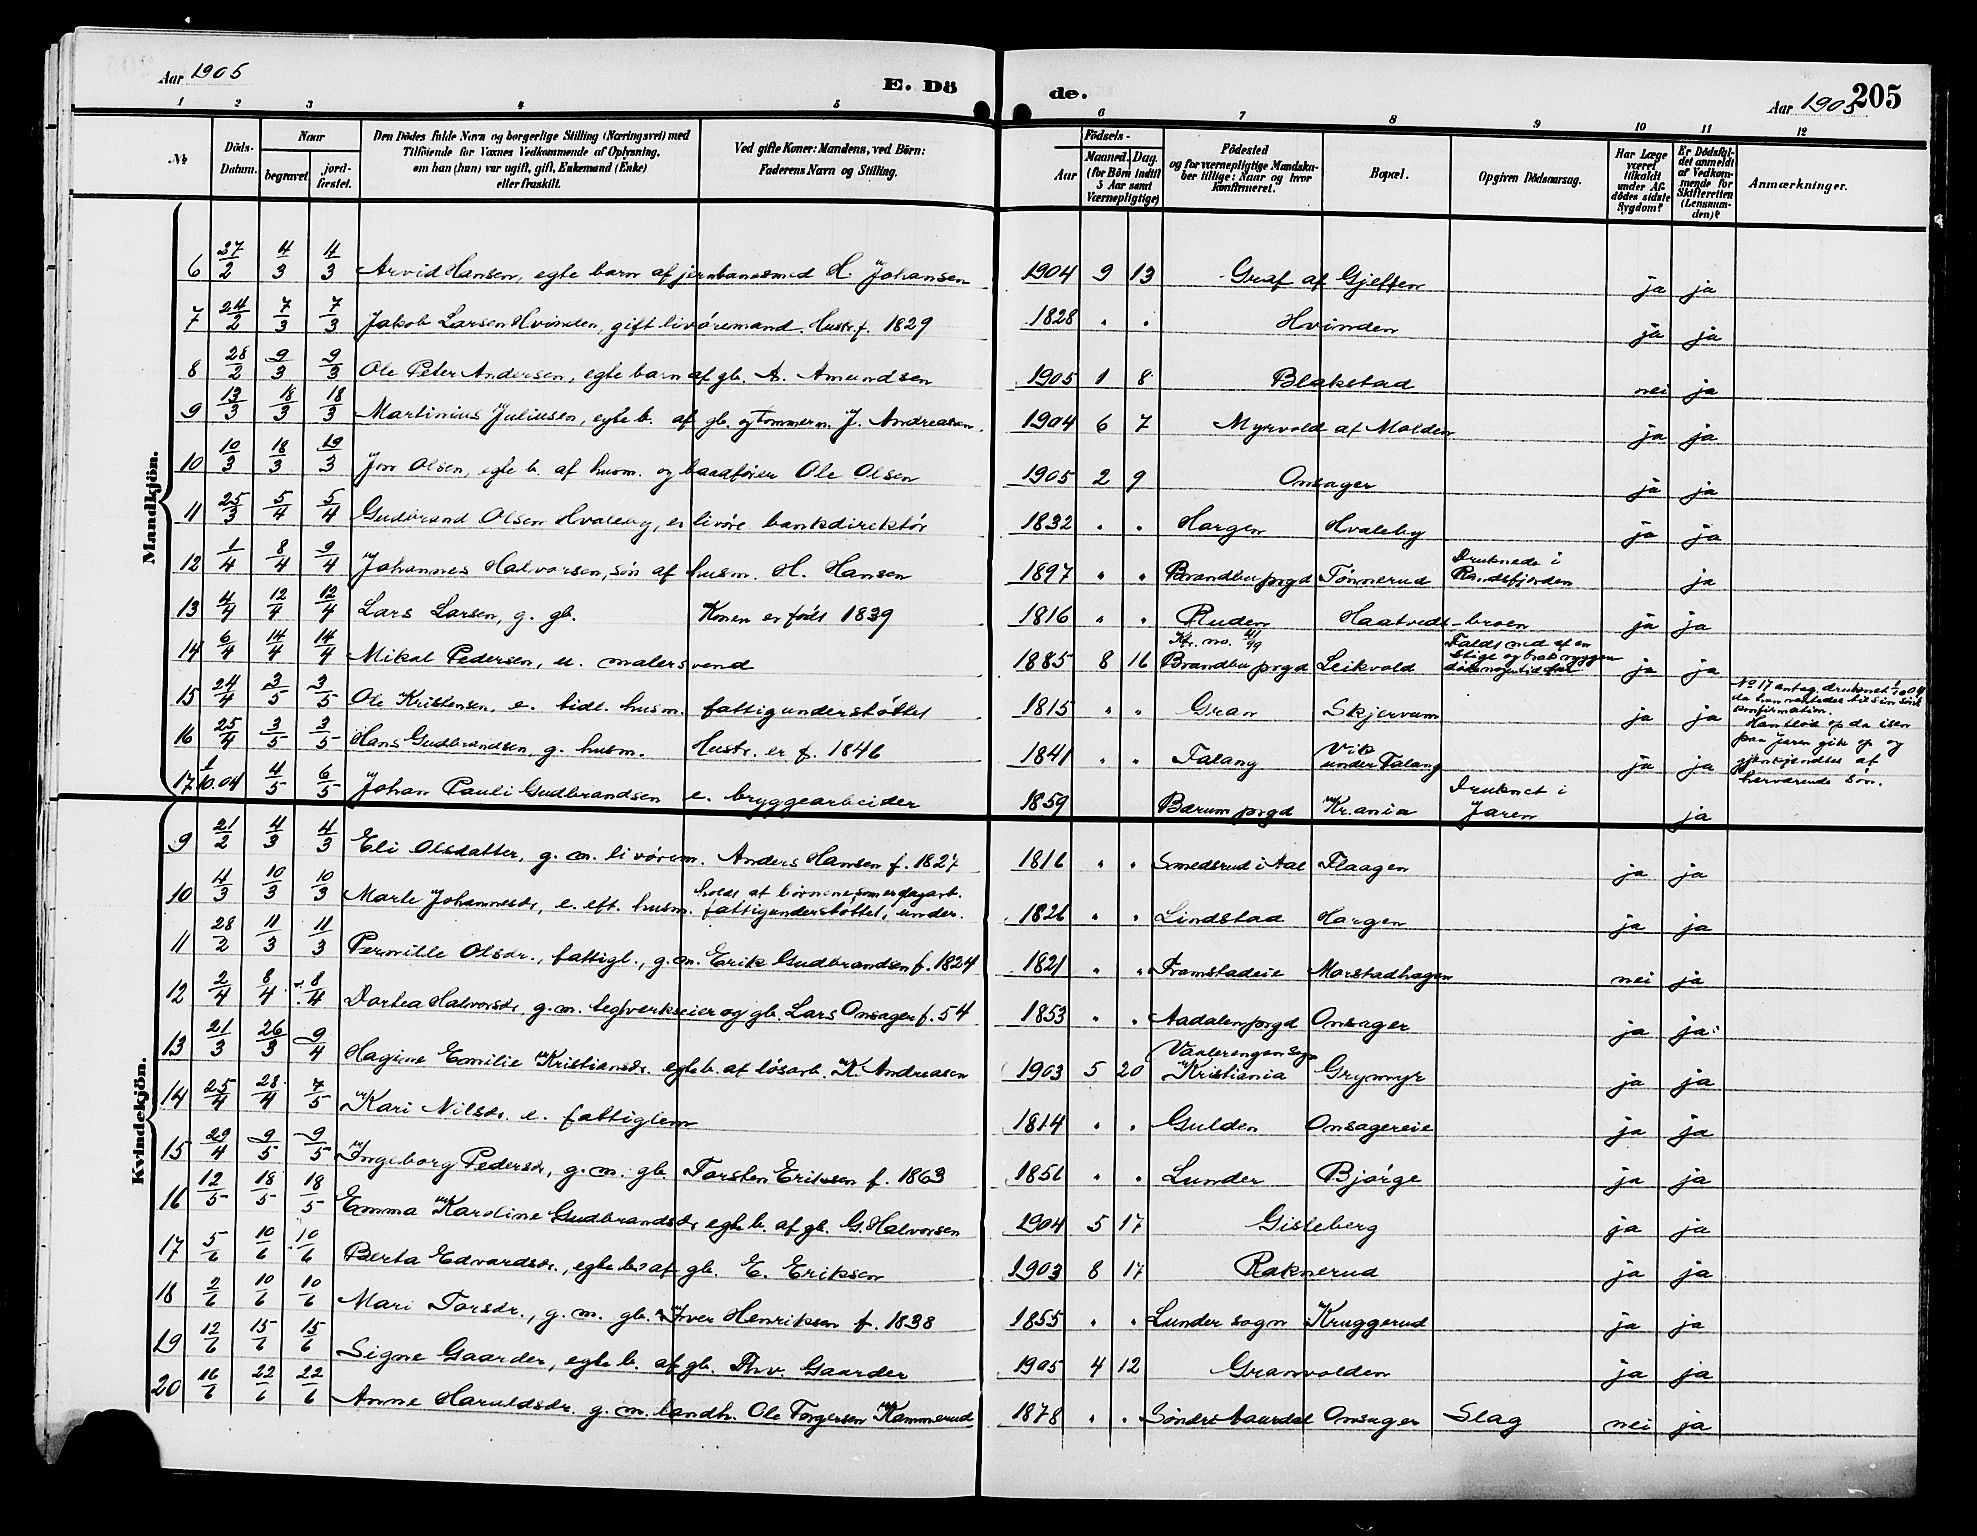 Aar 1905 E. Dö de. Aar 1905 205
1 2 3 4 5 6 7 8 9 10 11 12
No. Döds-Datum. Naar begravet jordfæstet. Den Dödes fulde Navn og borgerlige Stilling (Næringsvei) med Tilföiende for Voxnes Vedkommende af Oplysning, om han (hun) var ugift, gift, Enkemand (Enke) eller fraskilt. Ved gifte Koner: Mandens, ved Börn: Faderens Navn og Stilling. Födsels- Aar Maaned. Dag. (for Börn indtil 5 Aar samt Værnepligtige) Födested og for værnepligtige Mandskaber tillige: Naar og hvor Konfirmeret. Bopæl. Opgiven Dödsaarsag. Har Læge været tilkaldt under Afdödes sidste Sygdom? Er Dödsfaldet anmeldt af Vedkommende for Skifteretten (Lensmanden)? Anmærkninger.
Mandkjön.
6 27/2 4/3 4/3 Arvid Hansen, egte barn af jernbanesmed H. Johansen 1904 9 13 Graf af Gjeffsen ja ja
7 24/2 7/3 7/3 Jakob Larsen Hvinden, gift livöremand. Hustr. f. 1829 1828 " " Hvinden ja ja
8 28/2 9/3 9/3 Ole Peter Andersen, egte barn af gb. A. Amundsen 1905 1 8 Blakstad nei ja
9 13/3 18/3 18/3 Martinius Juliusen, egte b. af gb. og tömmerm. J. Andreasen 1904 6 7 Myrvold af Molden ja ja
10 10/3 18/3 19/3 Jon Olsen, egte b. af husm. og baadförer Ole Olsen 1905 2 9 Onsager ja ja
11 25/3 5/4 5/4 Gudbrand Olsen Hvaleby, e. livöre bankdirektör 1832 " " Horgen Hvaleby ja ja
12 1/4 8/4 9/4 Johannes Halvorsen, sön af husm. H. Hansen 1897 " " Brandbu prgd Tönnerud Druknede i Randsfjorden ja
13 4/4 12/4 12/4 Lars Larsen, g. gb. Konen er födt 1839 1816 " " Ruden Haatvedt-broen ja ja
14 6/4 14/4 14/4 Mikal Pedersen, u. malersvend 1885 8 16 Kfr. no. Brandbu prgd Leikvold Faldt ned af en stige og brak ryggen ja ja
15 24/4 3/5 3/5 Ole Kristensen, e. tidl. husm. fattigunderstöttet 1815 " " Gran Skjervum ja ja
16 25/4 3/5 3/5 Hans Gudbrandsen, g. husm. Hustr. er f. 1846 1841 " " Falang Vik under Falang ja ja
17 1/10.04 4/5 6/5 Johan Pauli Gudbrandsen e. bryggearbeider 1859 Bærum prgd Kr.ania Druknet i Jaren ja
No 17 antag. druknet 1/10 04 da han ventedes til sin söns konfirmation. Han flöt op da isen paa Jaren gik op og gjenkjendtes af herværende sön.
Kvindekjön.
9 21/2 4/3 4/3 Eli Olsdatter, g. m. livörem. Anders Hansen f. 1827 1816 " " Smedsrud i Aal Flaagen ja ja
10 4/3 10/3 10/3 Marte Johannesdr, e. eft. husm. fattigunderstöttet, underholdt af börnene som er dagarb. 1826 " " Lindstad Horgen ja ja
11 28/2 11/3 11/3 Pernille Olsdr., fattigl., g. m. Erik Gudbrandsen f. 1824 1821 " " Framstadeie Morstadhagen nei ja
12 2/4 8/4 8/4 Dortea Halvorsdr, g. m. teglverkseier og gb. Lars Onsager f. 54 1853 " " Aadalen prgd Onsager ja ja
13 21/3 26/3 9/4 Hagine Emilie Kristiansdr. egte b. af lösarb. K. Andreasen 1903 5 20 Vaalerengen sogn Kristiania Grymyr ja ja
14 25/4 28/4 7/5 Kari Nilsdr. e. fattiglem 1814 " " Gulden Onsagereie ja ja
15 29/4 9/5 9/5 Ingeborg Pedersdr, g. m. gb. Torsten Eriksen f. 1863 1851 " " Lunder Bjørge ja ja
16 12/5 18/5 18/5 Emma Karoline Gudbrandsdr egte b. af gb. G. Halvorsen 1904 5 17 Gisleberg ja ja
17 5/6 10/6 10/6 Berta Edvardsdr., egte b. af gb. E. Eriksen 1903 8 17 Raknerud ja ja
18 2/6 10/6 10/6 Mari Torsdr., g. m. gb. Iver Henriksen f. 1838 1855 " " Lunder sogn Kruggerud ja ja
19 12/6 15/6 15/6 Signe Gaarder, egte b. af gb. Thv. Gaarder 1905 4 12 Granvolden ja ja
20 16/6 22/6 22/6 Anne Haraldsdr. g. m. landh. Ole Torgersen Kammerud 1878 " " Söndre Aurdal Onsager Slag nei ja